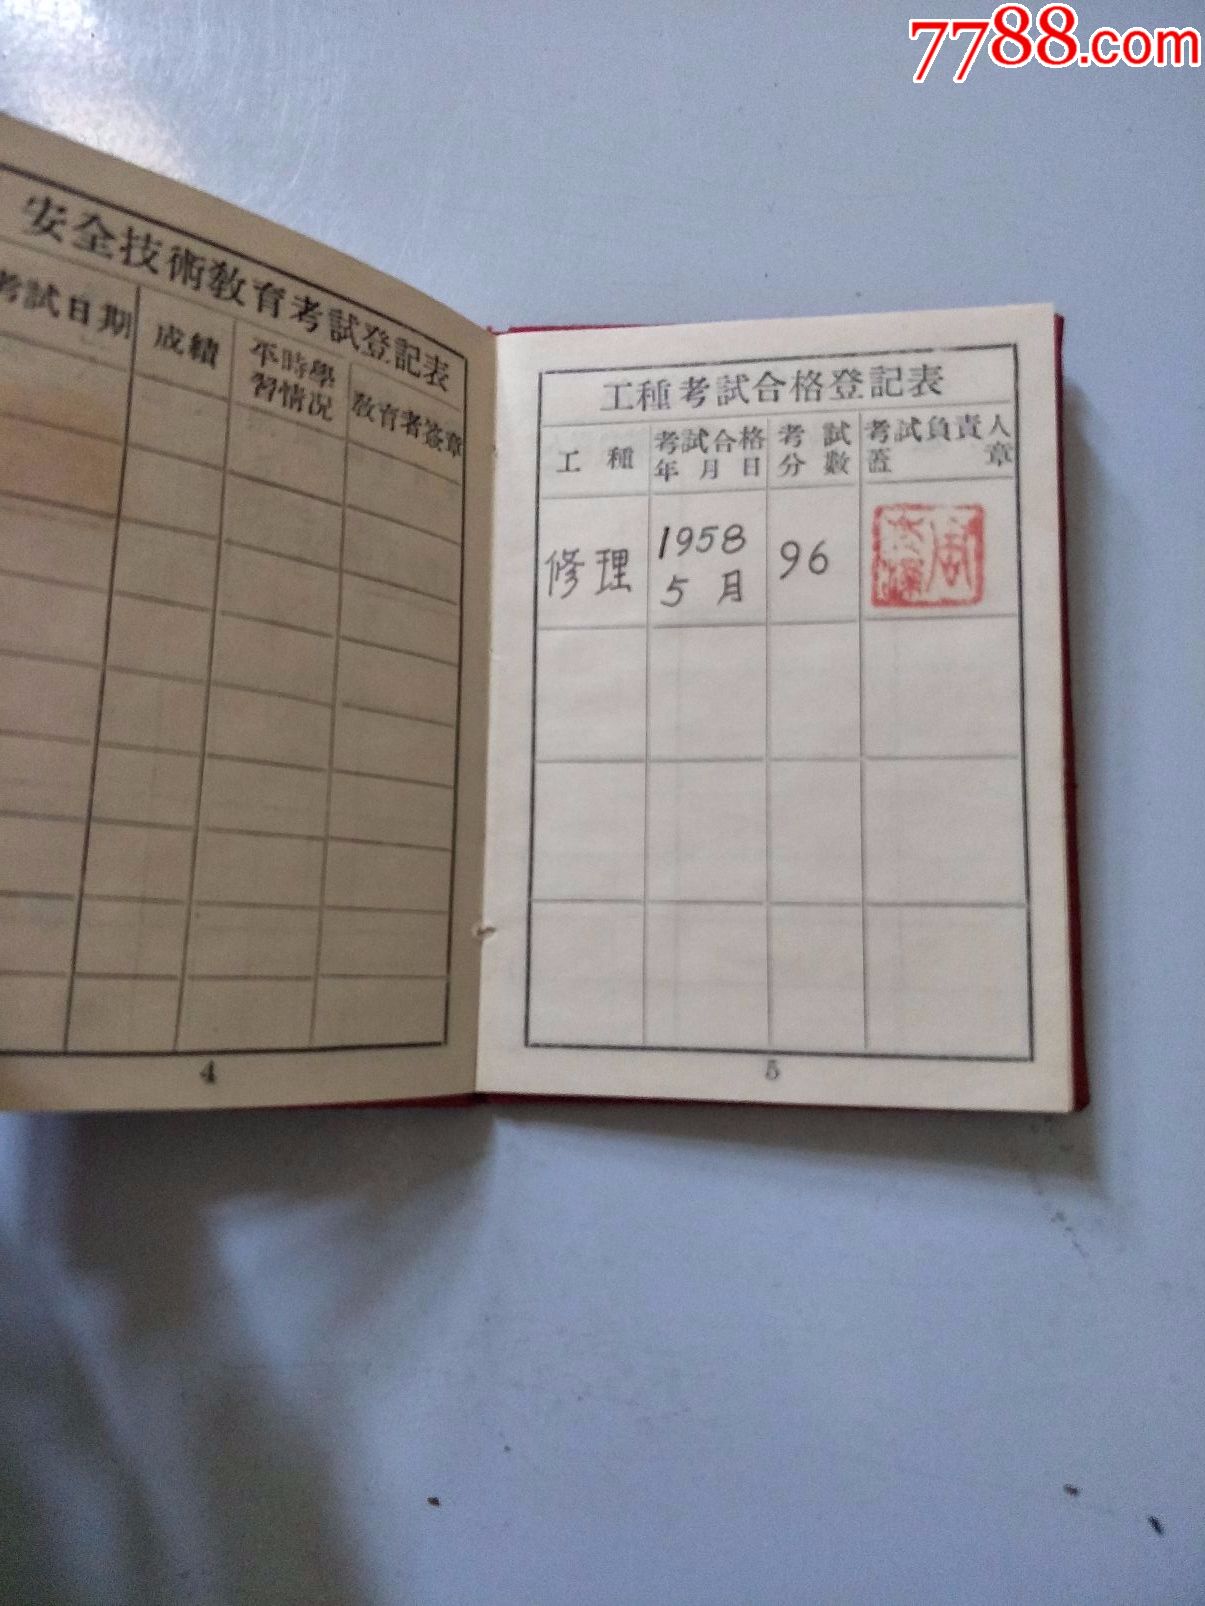 7788.com
安全技術教育考試登記表
考試日期
成績
平時學
習情况
教育者簽章
4
工種考試合格登記表
工種
考試合格
年月日
考試
分數
考試負責人
蓋章
修理
1958
5月
96
周
5